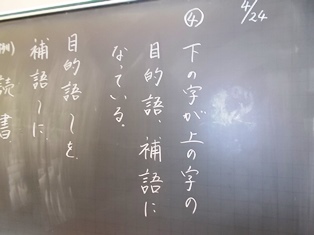 4/24
④ 下の字が上の字の
目的語、補語に
なっている。
目的語〜を
補語〜に
例) 読書